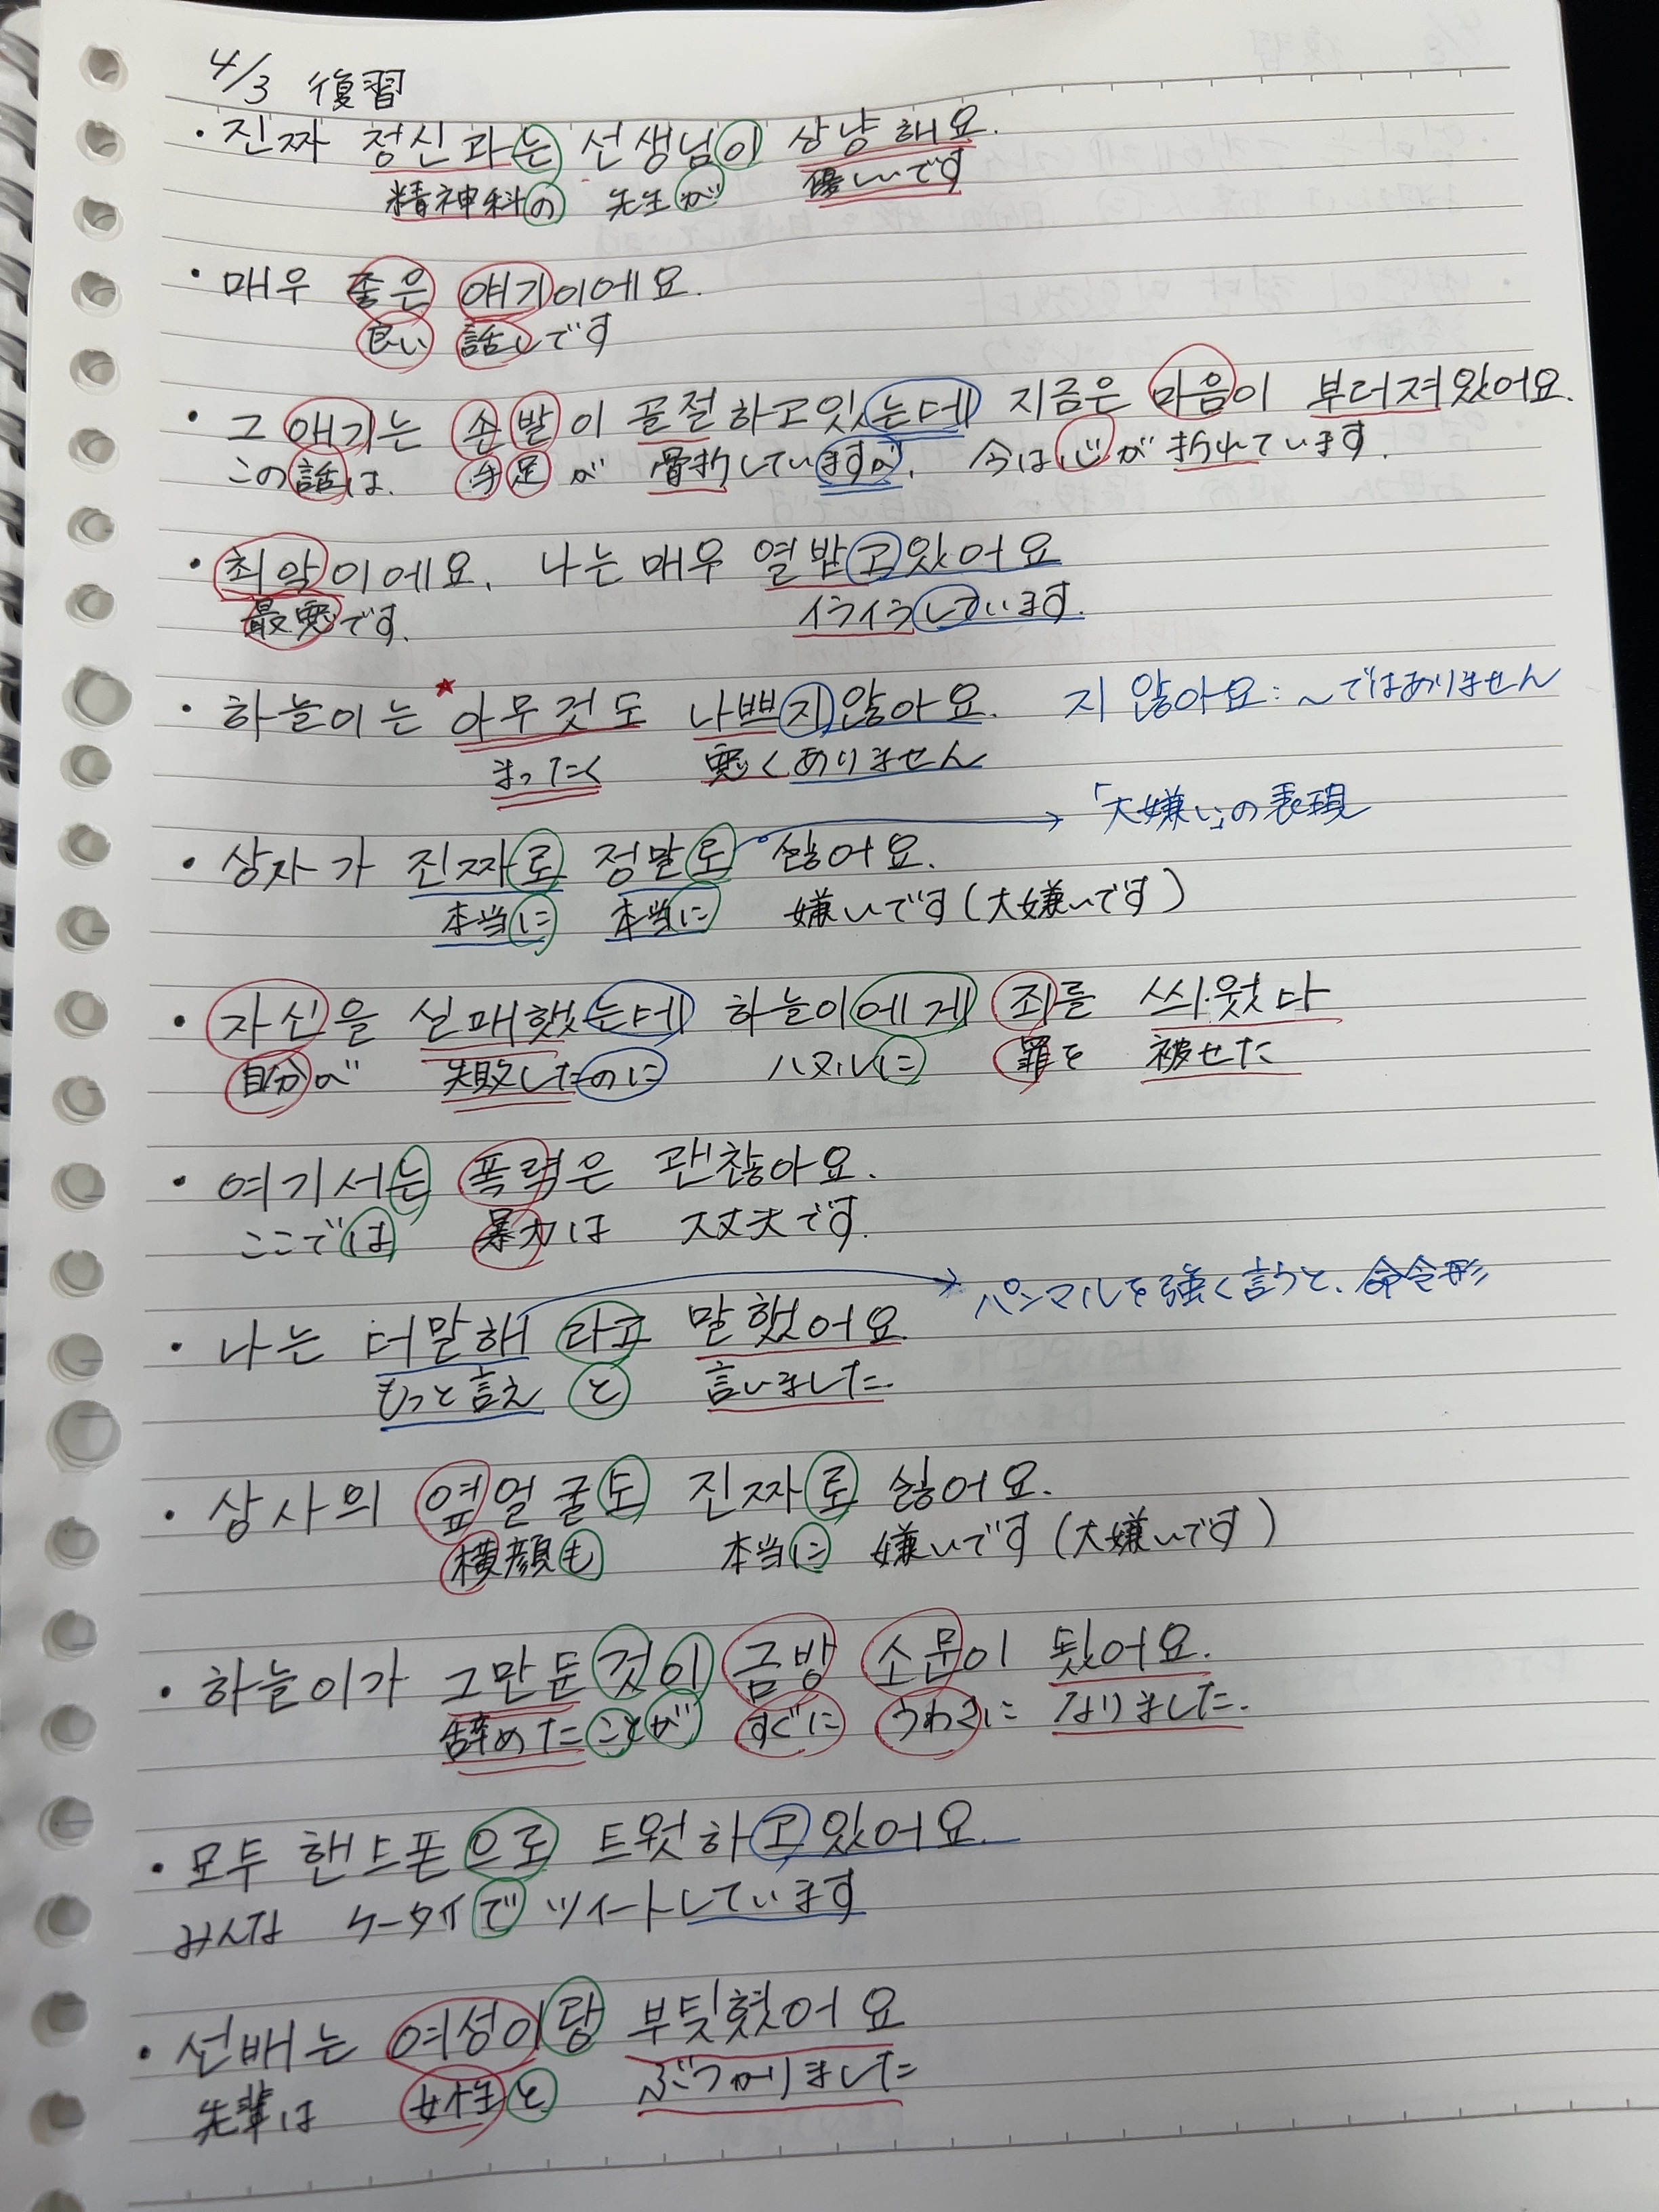 4/3 復習
・진짜 정신과는 선생님이 상냥해요.
精神科の 先生が 優しいです
・매우 좋은 얘기이에요.
良い 話しです
・그 얘기는 손발이 골절하고있는데 지금은 마음이 부러져있어요.
この話は、手足が 骨折していますが、今は心が折れています.
・최악이에요. 나는 매우 열받고있어요
最悪です. イライラしています.
・하늘이는 ★아무것도 나쁘지않아요. 지 않아요:〜ではありません
まったく 悪くありません
→「大嫌い」の表現
・상자가 진짜로 정말로 싫어요.
本当に 本当に 嫌いです(大嫌いです)
・자신을 실패했는데 하늘이에게 죄를 씌웠다
自分が 失敗したのに ハヌルに 罪を 被せた
・여기서는 폭력은 괜찮아요.
ここでは 暴力は 大丈夫です.
→パンマルを強く言うと、命令形
・나는 더말해 라고 말했어요.
もっと言え と 言いました.
・상사의 옆얼굴도 진짜로 싫어요.
横顔も 本当に 嫌いです(大嫌いです)
・하늘이가 그만둔것이 금방 소문이 됬어요.
辞めたことが すぐに うわさに なりました.
・모두 핸드폰으로 트윗하고있어요.
みんな ケータイで ツイートしています
・선배는 여성이랑 부딪혔어요
先輩は 女性と ぶつかりました